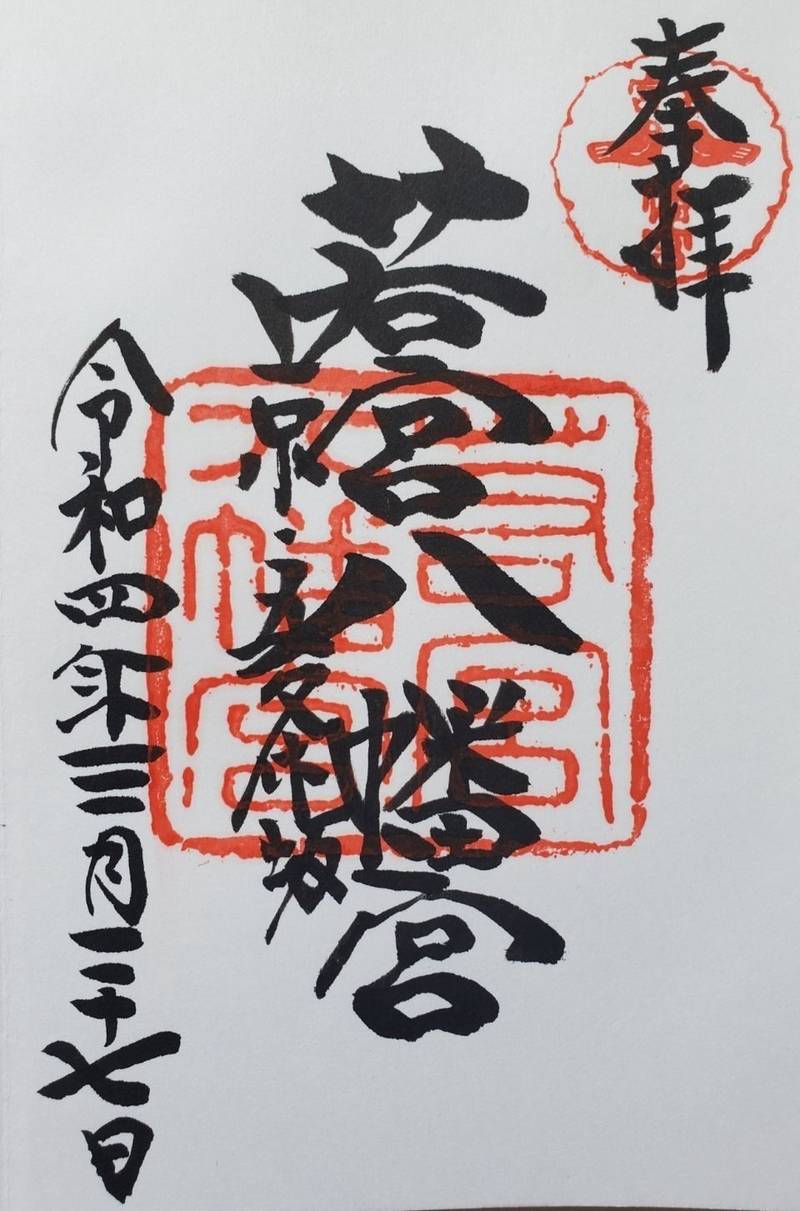 奉拝
若宮八幡宮
京五條坂
令和四年三月二十七日
若宮八幡宮